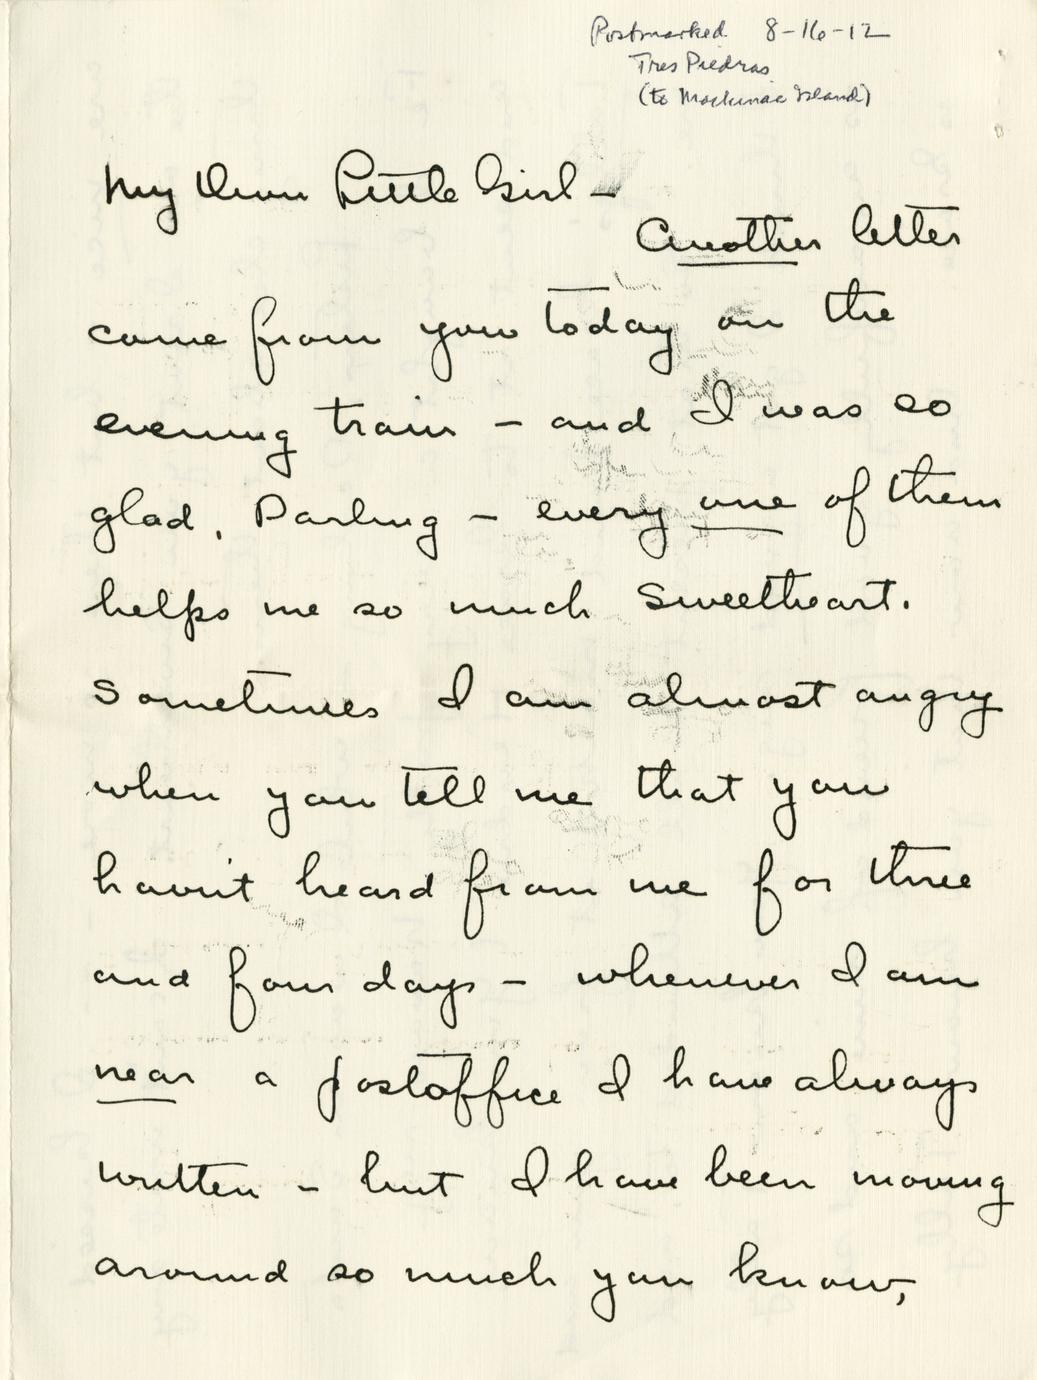 Postmarked 8-16-12
Tres Piedras
(to Mackinac Island)
My Own Little Girl -
Another letter
came from you today on the
evening train - and I was so
glad, Darling - every one of them
helps me so much Sweetheart.
Sometimes I am almost angry
when you tell me that you
havn't heard from me for three
and four days - whenever I am
near a postoffice I have always
written - but I have been moving
around so much you know,